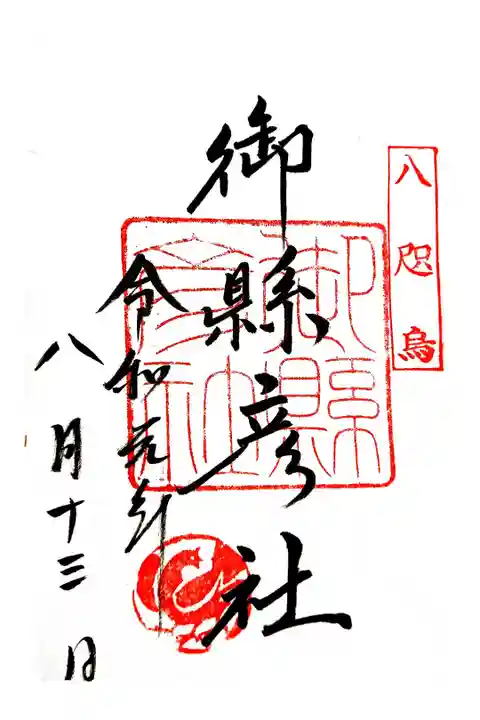 八咫烏
御縣彦社
令和元年
八月十三日
御縣彦社